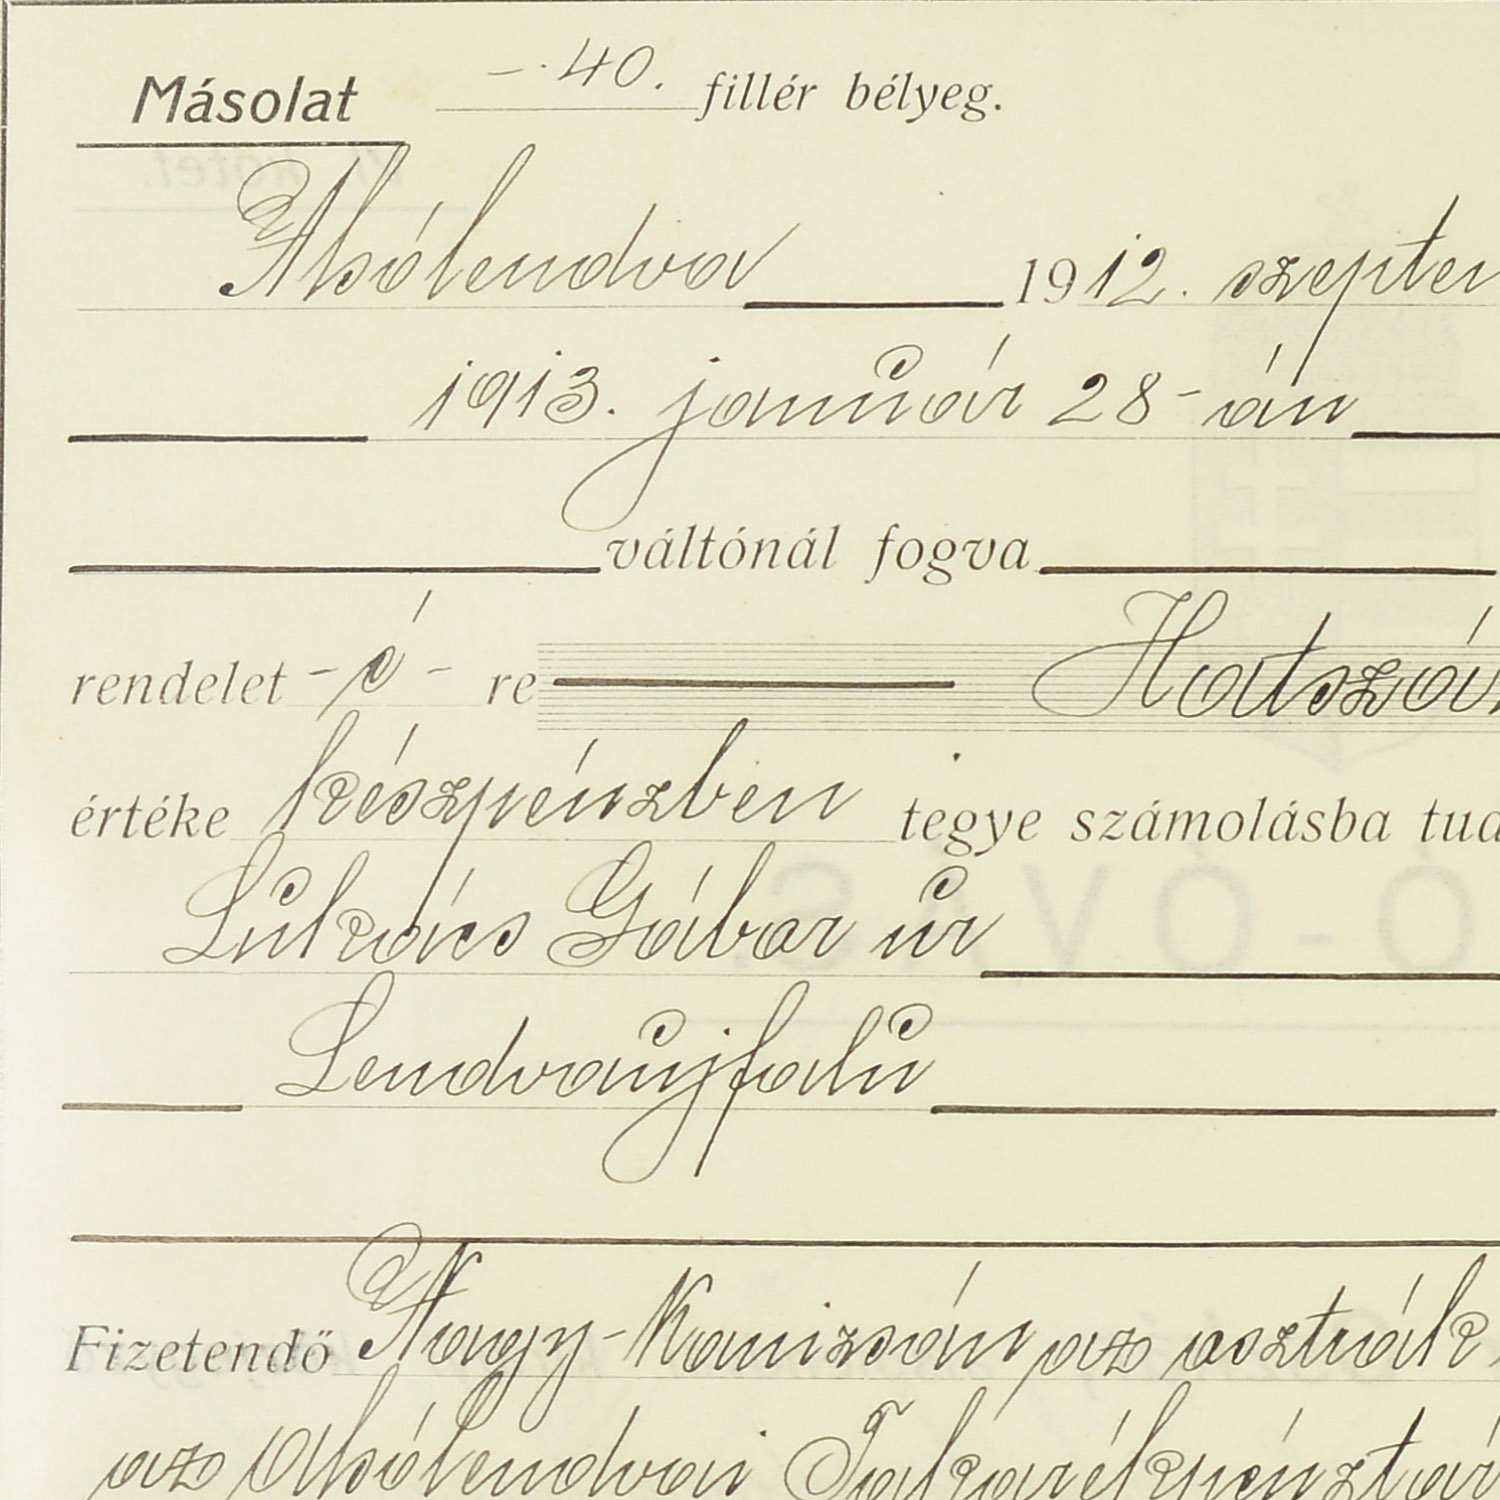 Másolat -.40. fillér bélyeg.
Alsólendva 1912. szepter
1913. január 28-án
váltónál fogva
rendelet - é - re Hatszáz
értéke készpénzben tegye számolásba tud
Lukács Gábor úr
Lendvaujfalu
Fizetendő Nagy-Kanizsán az osztrák
az Alsólendvai Takarékpénztár